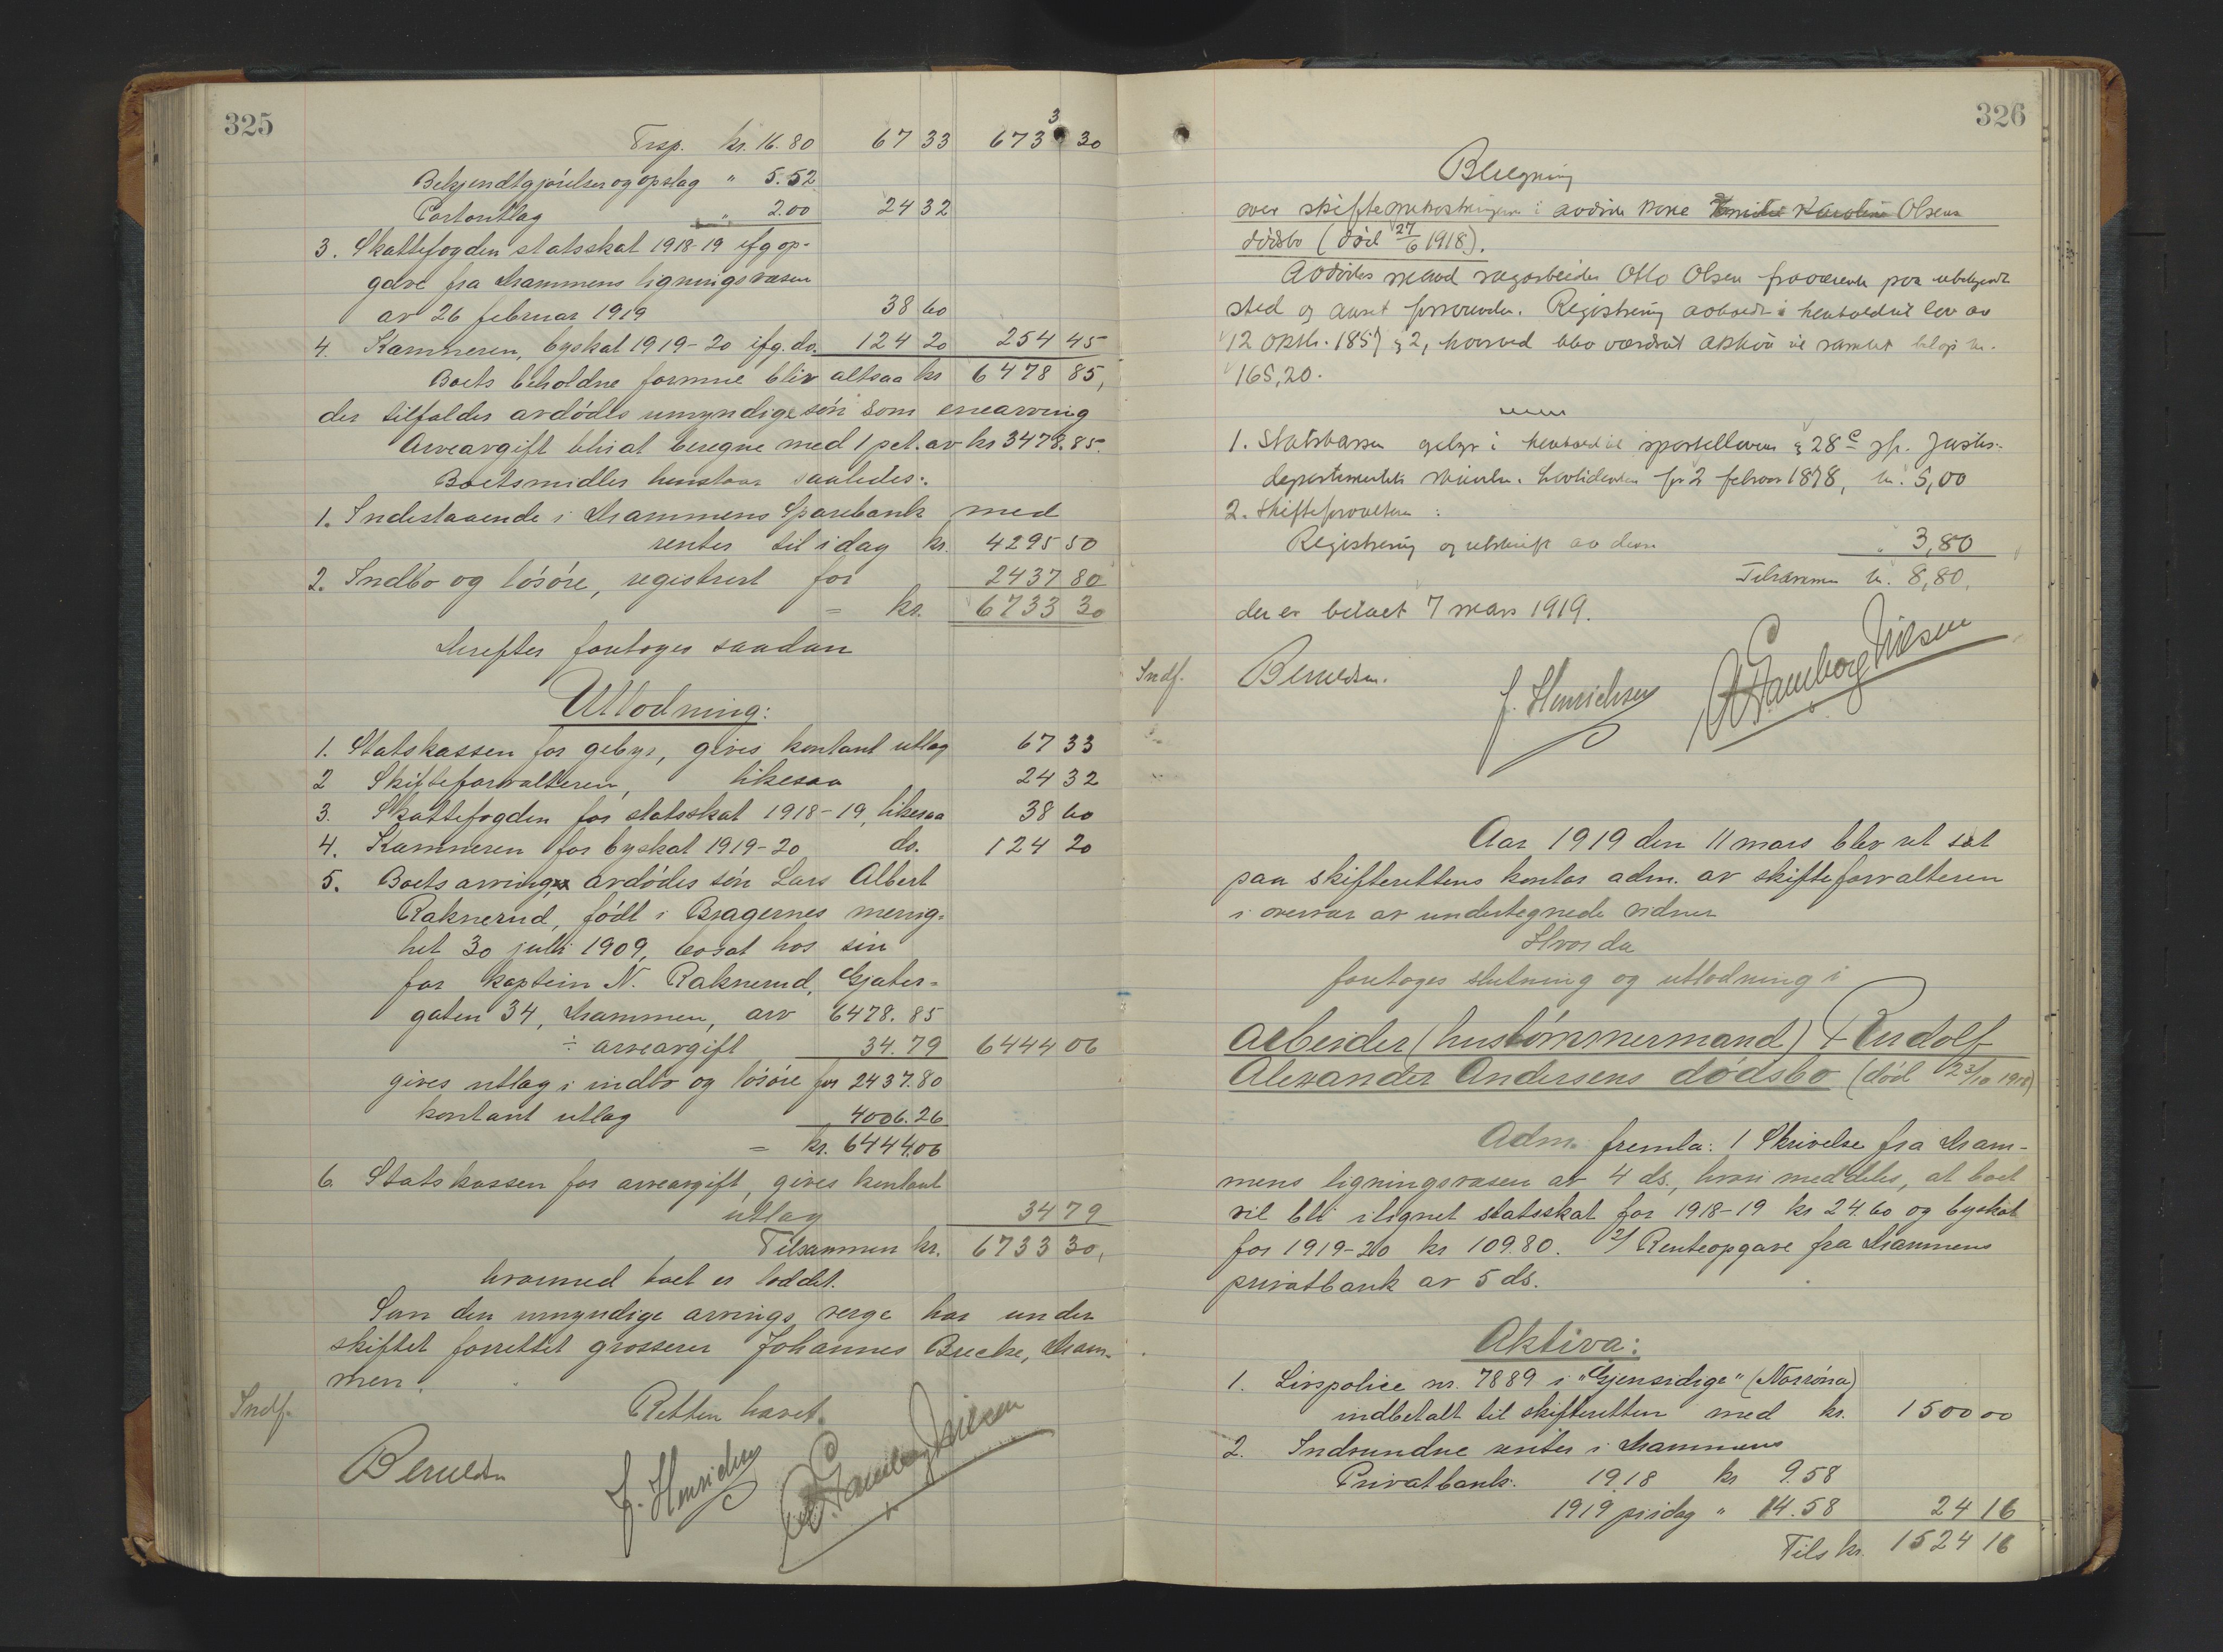 325
Trsp. kr. 16.80 67 33 6733 30
Bekjendtgjørelser og opslag " 5.52
Portoutlag " 2.00 24 32
3. Skattefogden statsskat 1918-19 ifg op-
gave fra Drammens ligningsvæsen
av 26 februar 1919 38 60
4. Kæmneren, byskat 1919-20 ifg. do. 124 20 254 45
Boets beholdne formue blir altsaa kr 6478 85,
der tilfalder avdødes umyndige søn som enearving
Arveavgift blir at beregne med 1 pct. av kr 3478.85.
Boets midler henstaar saaledes:
1. Indestaaende i Drammens Sparebank med
renter til idag kr. 4295 50
2. Indbo og løsøre, registrert for 2437 80
= kr. 6733 30
Derefter foretoges saadan
Utlodning:
1. Statskassen for gebyr, gives kontant utlæg 67 33
2 Skifteforvalteren, likesaa 24 32
3. Skattefogden for statsskat 1918-19, likesaa 38 60
4. Kæmneren for byskat 1919-20 do. 124 20
5. Boets arving, avdødes søn Lars Albert
Raknerud, født i Bragernes menig-
het 30 juli 1909, bosat hos sin
far kaptein N. Raknerud, Gjæter-
gaten 34, Drammen, arv 6478.85
÷ arveavgift 34.79 6444 06
gives utlæg i indbo og løsøre for 2437.80
kontant utlæg 4006.26
= kr. 6444.06
6. Statskassen for arveavgift, gives kontant
utlæg 34 79
Tilsammen kr. 6733 30,
hvormed boet er loddet.
Som den umyndige arvings verge har under
skiftet forrettet grosserer Johannes Brecke, Dram-
men.
Retten hævet.
Indf.
J. Henrichsen
326
Beregning
over skifteomkostningene i avdøde kone Karoline Olsens
dødsbo (død 27/6 1918).
Avdødes mand sagarbeider Otto Olsen fraværende paa ubekjendt
sted og anset forsvunden. Registrering avholdt i henhold til lov av
12 oktbr. 1857 § 2, hvorved blev værdsat aktiva til samlet beløp kr.
165,20.
1. Statskassen gebyr i henhold til sportelloven § 28 c jfr. Justis-
departementets februar 1878, kr. 5,00
2. Skifteforvalteren:
Registrering og utskrift av den " 3,80
Tilsammen kr. 8,80,
der er betalt 7 mars 1919.
Indf.
J. Henrichsen
Aar 1919 den 11 mars blev ret sat
paa skifterettens kontor adm. av skifteforvalteren
i overvær av undertegnede vidner
Hvorda
foretoges slutning og utlodning i
Arbeider (hustømmermand) Rudolf
Alexander Andersens dødsbo (død 23/10 1918)
Adm. fremla: 1 Skrivelse fra Dram-
mens ligningsvæsen av 4 ds., hvori meddeles, at boet
vil bli ilignet statsskat for 1918-19 kr 24.60 og byskat
for 1919-20 kr 109.80. 2) Renteopgave fra Drammens
privatbank av 5 ds.
Aktiva:
1. Livspolice nr. 7889 i "Gjensidige" (Norrøna)
indbetalt til skifteretten med kr. 1500 00
2. Indvundne renter i Drammens
Privatbank: 1918 kr 9.58
1919 pr idag " 14.58 24 16
Tils kr. 1524 16